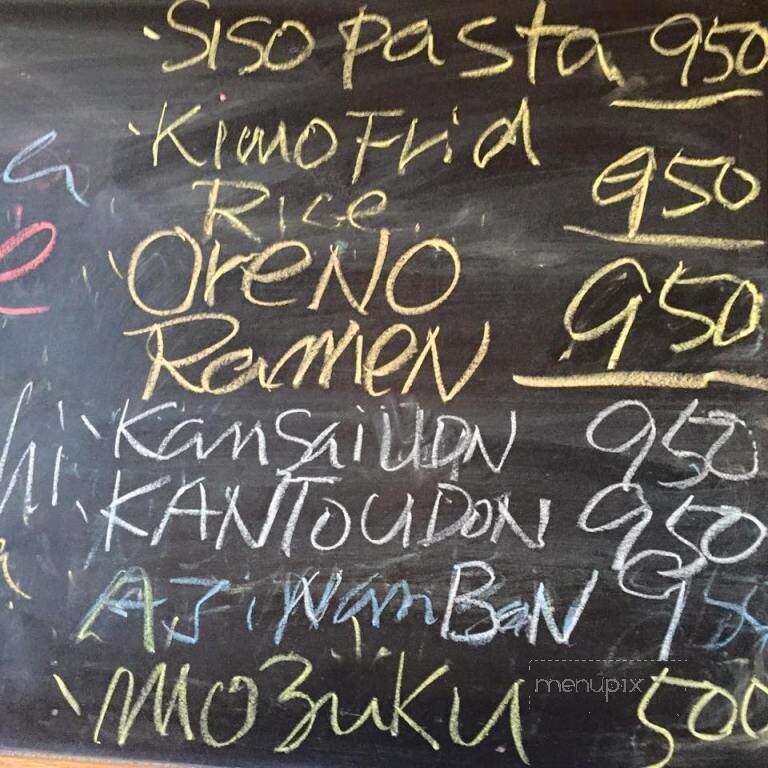 SISO Pasta 950
KimoFrid
Rice 950
OreNO
RameN 950
KanSaiUDN 950
KANToUDON 950
AJiNanBaN 95
MOZUKU 500
menupix